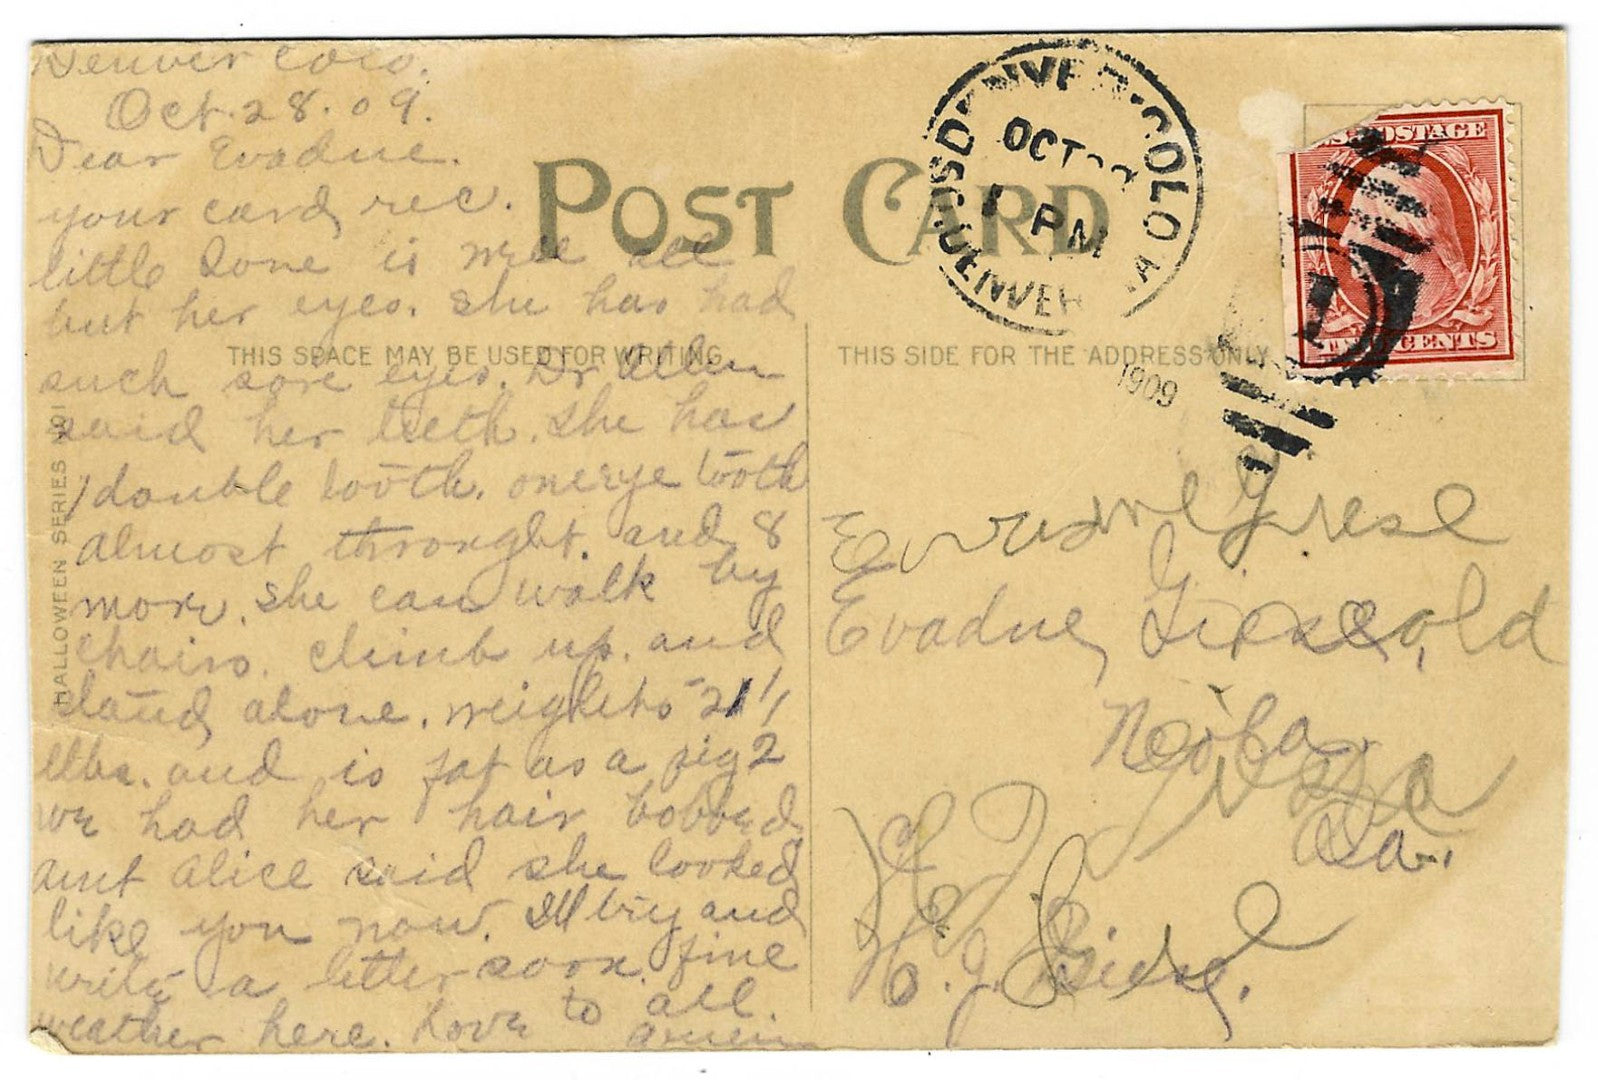 Denver Colo.
Oct. 28. 09.
Dear Evadne.
your card rec.
little Ione is well all
but her eyes. She has had
such sore eyes. Dr Allen
said her teeth. She has
1 double tooth. one eye tooth
almost throught. and 8
more. She can walk by
chairs. climb up. and
stand alone. weighs 21 1/2
lbs. and is fat as a pig
we had her hair bobbed,
aunt Alice said she looked
like you now. I'll try and
write a letter soon. fine
weather here. Love to all.
HALLOWEEN SERIES NO 1
POST CARD
THIS SPACE MAY BE USED FOR WRITING.
THIS SIDE FOR THE ADDRESS ONLY
DENVER · COLO
OCT
1 PM
DENVER
1909
U.S. POSTAGE
TWO CENTS
Evadne Giese
Evadne Giese
Neola
Ia.
% H. J. Giese.